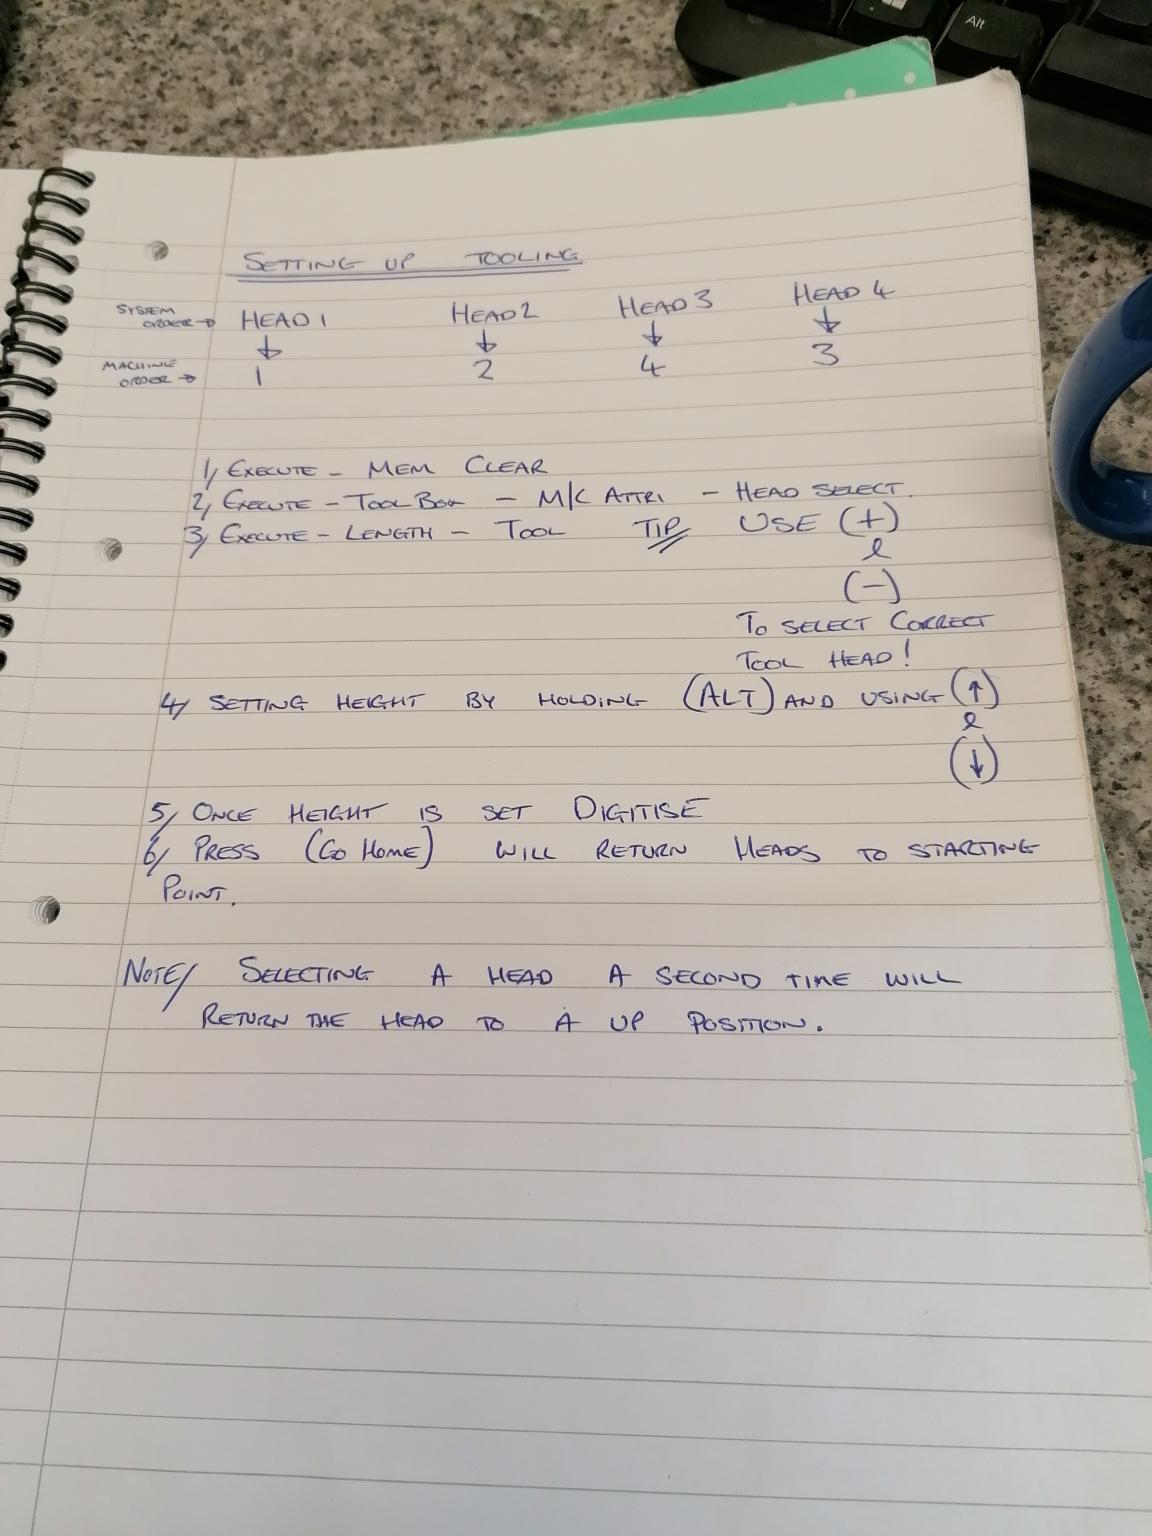 Alt
SETTING UP TOOLING
SYSTEM ORDER → HEAD 1 HEAD 2 HEAD 3 HEAD 4
↓ ↓ ↓ ↓
MACHINE ORDER → 1 2 4 3
1/ EXECUTE - MEM CLEAR
2/ EXECUTE - TOOL BOX - M/C ATTRI - HEAD SELECT.
3/ EXECUTE - LENGTH - TOOL TIP USE (+)
&
(-)
TO SELECT CORRECT
TOOL HEAD!
4/ SETTING HEIGHT BY HOLDING (ALT) AND USING (↑)
&
(↓)
5/ ONCE HEIGHT IS SET DIGITISE
6/ PRESS (GO HOME) WILL RETURN HEADS TO STARTING
POINT.
NOTE/ SELECTING A HEAD A SECOND TIME WILL
RETURN THE HEAD TO A UP POSITION.